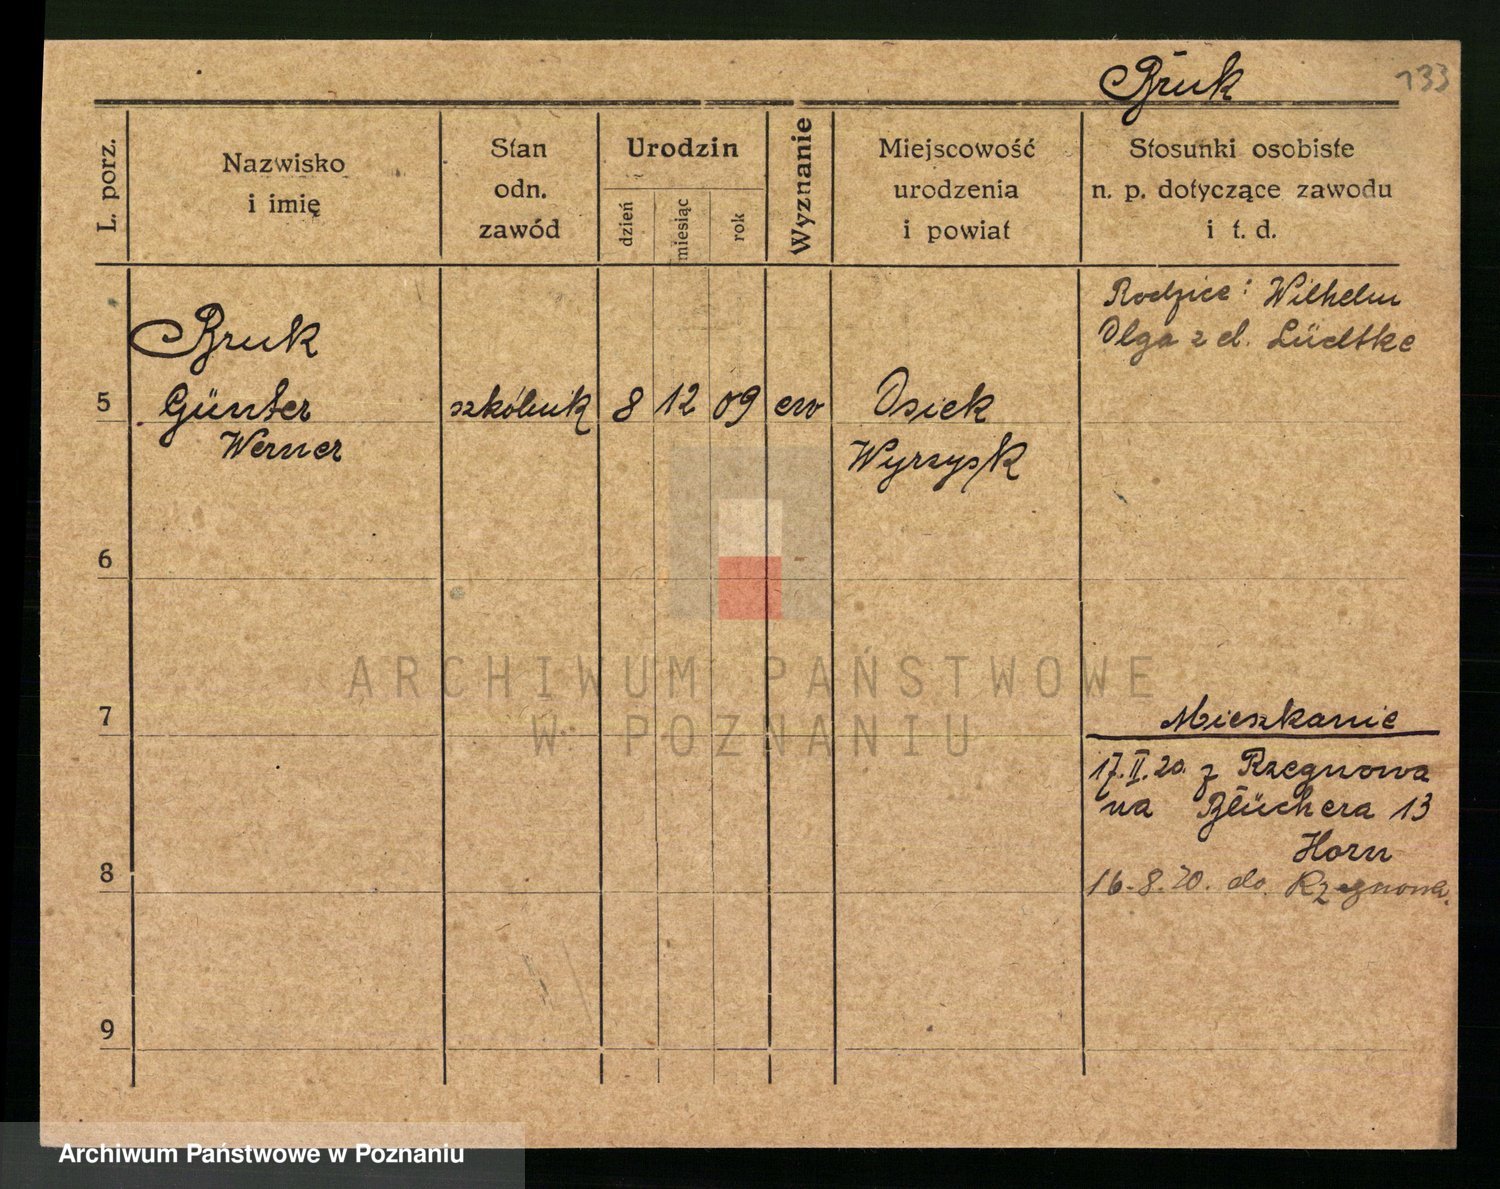 Bruk
133
L. porz.
Nazwisko
i imię
Stan
odn.
zawód
Urodzin
dzień
miesiąc
rok
Wyznanie
Miejscowość
urodzenia
i powiat
Stosunki osobiste
n. p. dotyczące zawodu
i t. d.
Rodzice: Wilhelm
Olga z d. Lüdtke
Bruk
5 Günter szkólnik 8 12 09 ew Osiek
Werner Wyrzysk
6
7
Mieszkanie
17.II.20. z Rzegnowa
na Blüchera 13
Horn
8
16.8.20. do Rzegnowa.
9
ARCHIWUM PAŃSTWOWE
W POZNANIU
Archiwum Państwowe w Poznaniu